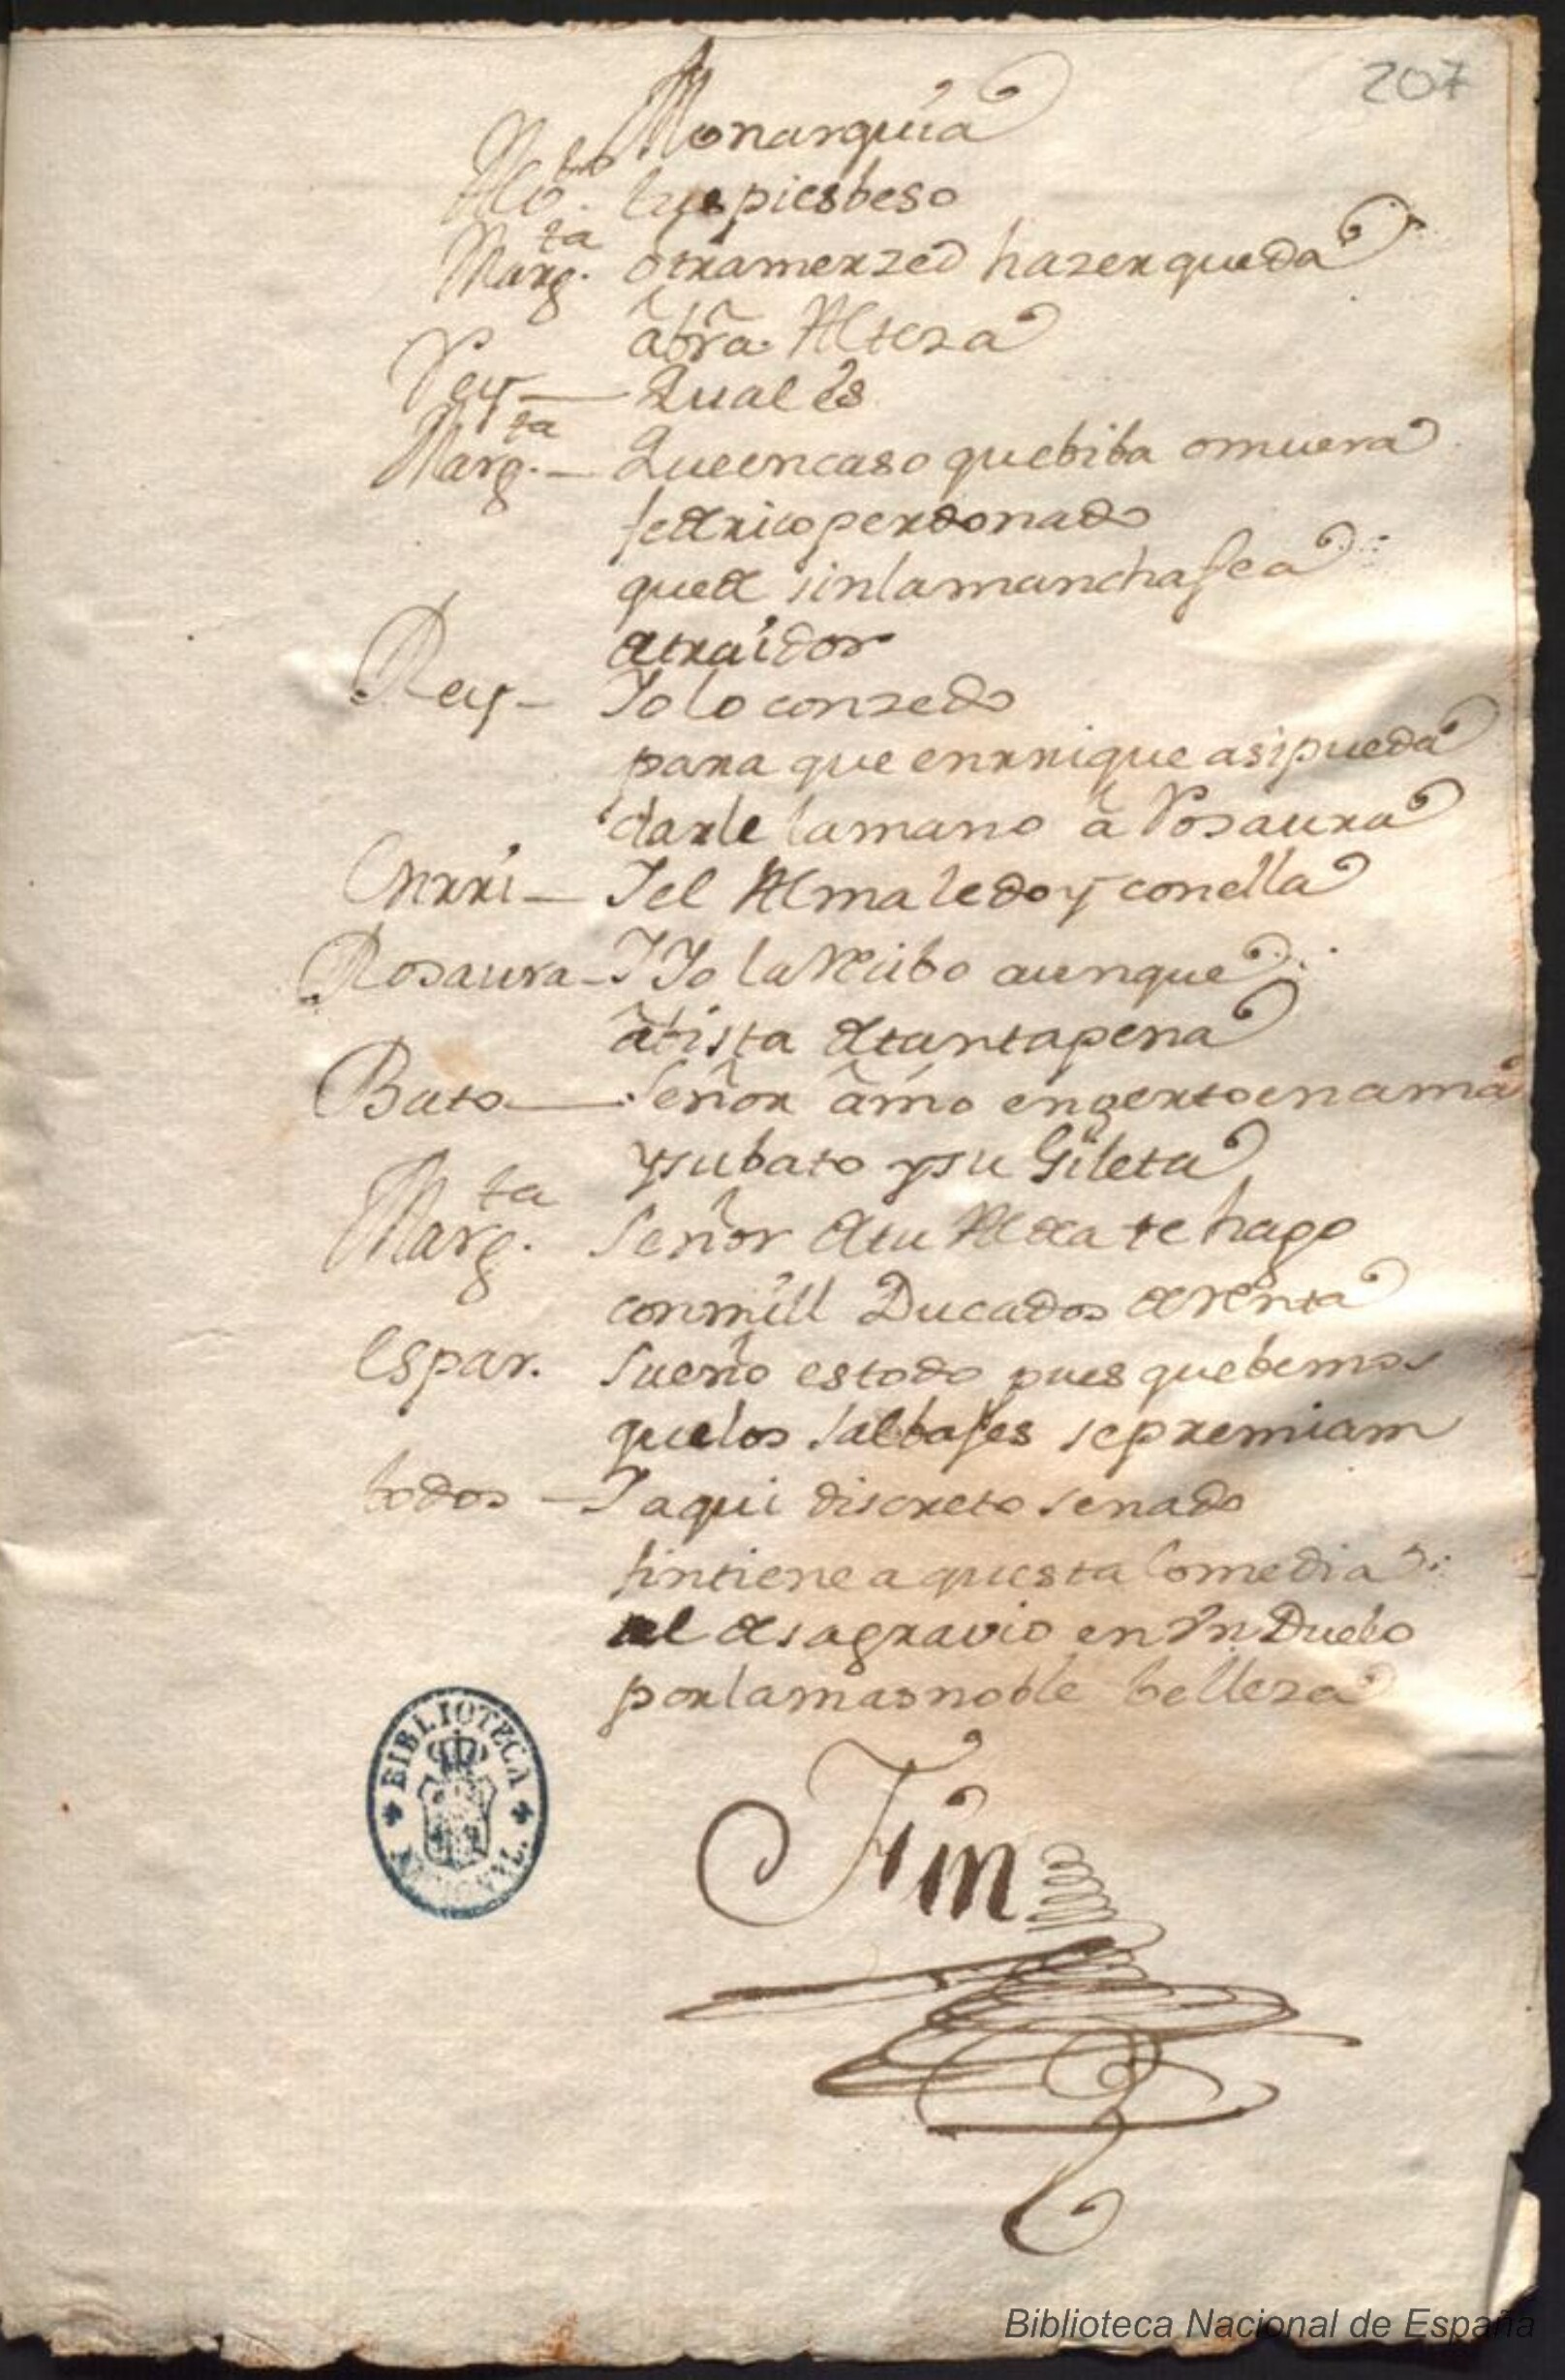 207
Monarquia
tus pies beso
Marg.ta otra merzed hazer queda
â bra. Alteza
Rey — Qual es
Marg.ta — Que en caso que biba o muera
federico perdonado
quede sin la mancha fea
de traidor
Rey — Yo lo conzedo
para que enrrique asi pueda
darle la mano â Rosaura
Enrri — I el Alma le doy con ella
Rosaura — I Yo la recibo aunque
â bista de tanta pena
Bato — Señor âmo engerto en ama
y su bato y su Gileta
Marg.ta Señor de tu Aldea te hago
con mill Ducados de renta
Espar. sueño es todo pues que bemos
que los salbajes se premian
todos — I aqui discreto senado
fin tiene aquesta Comedia
del desagravio en Un Duelo
por la mas noble belleza
Fin
BIBLIOTECA NACIONAL.
Biblioteca Nacional de España